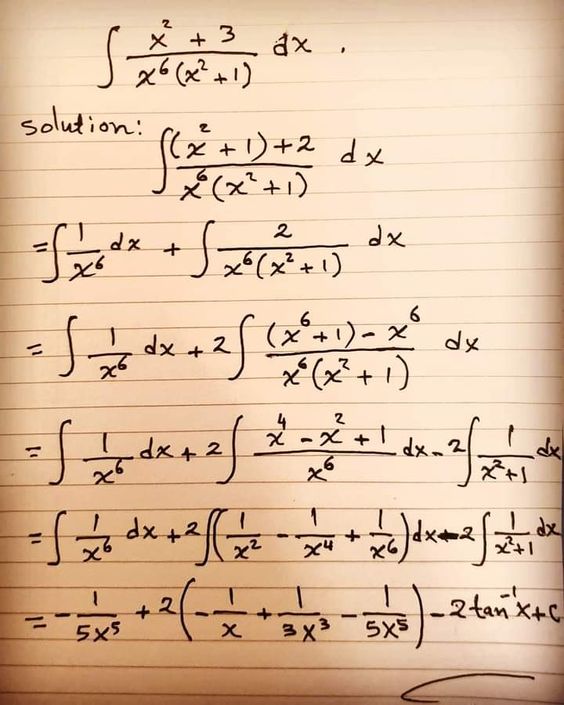 ∫ (x² + 3)/(x⁶(x² + 1)) dx .
solution:
∫ ((x² + 1) + 2)/(x⁶(x² + 1)) dx
= ∫ 1/x⁶ dx + ∫ 2/(x⁶(x² + 1)) dx
= ∫ 1/x⁶ dx + 2∫ ((x⁶ + 1) - x⁶)/(x⁶(x² + 1)) dx
= ∫ 1/x⁶ dx + 2∫ (x⁴ - x² + 1)/x⁶ dx - 2∫ 1/(x² + 1) dx
= ∫ 1/x⁶ dx + 2∫(1/x² - 1/x⁴ + 1/x⁶) dx - 2∫ 1/(x² + 1) dx
= -1/(5x⁵) + 2(-1/x + 1/(3x³) - 1/(5x⁵)) - 2 tan⁻¹x + C